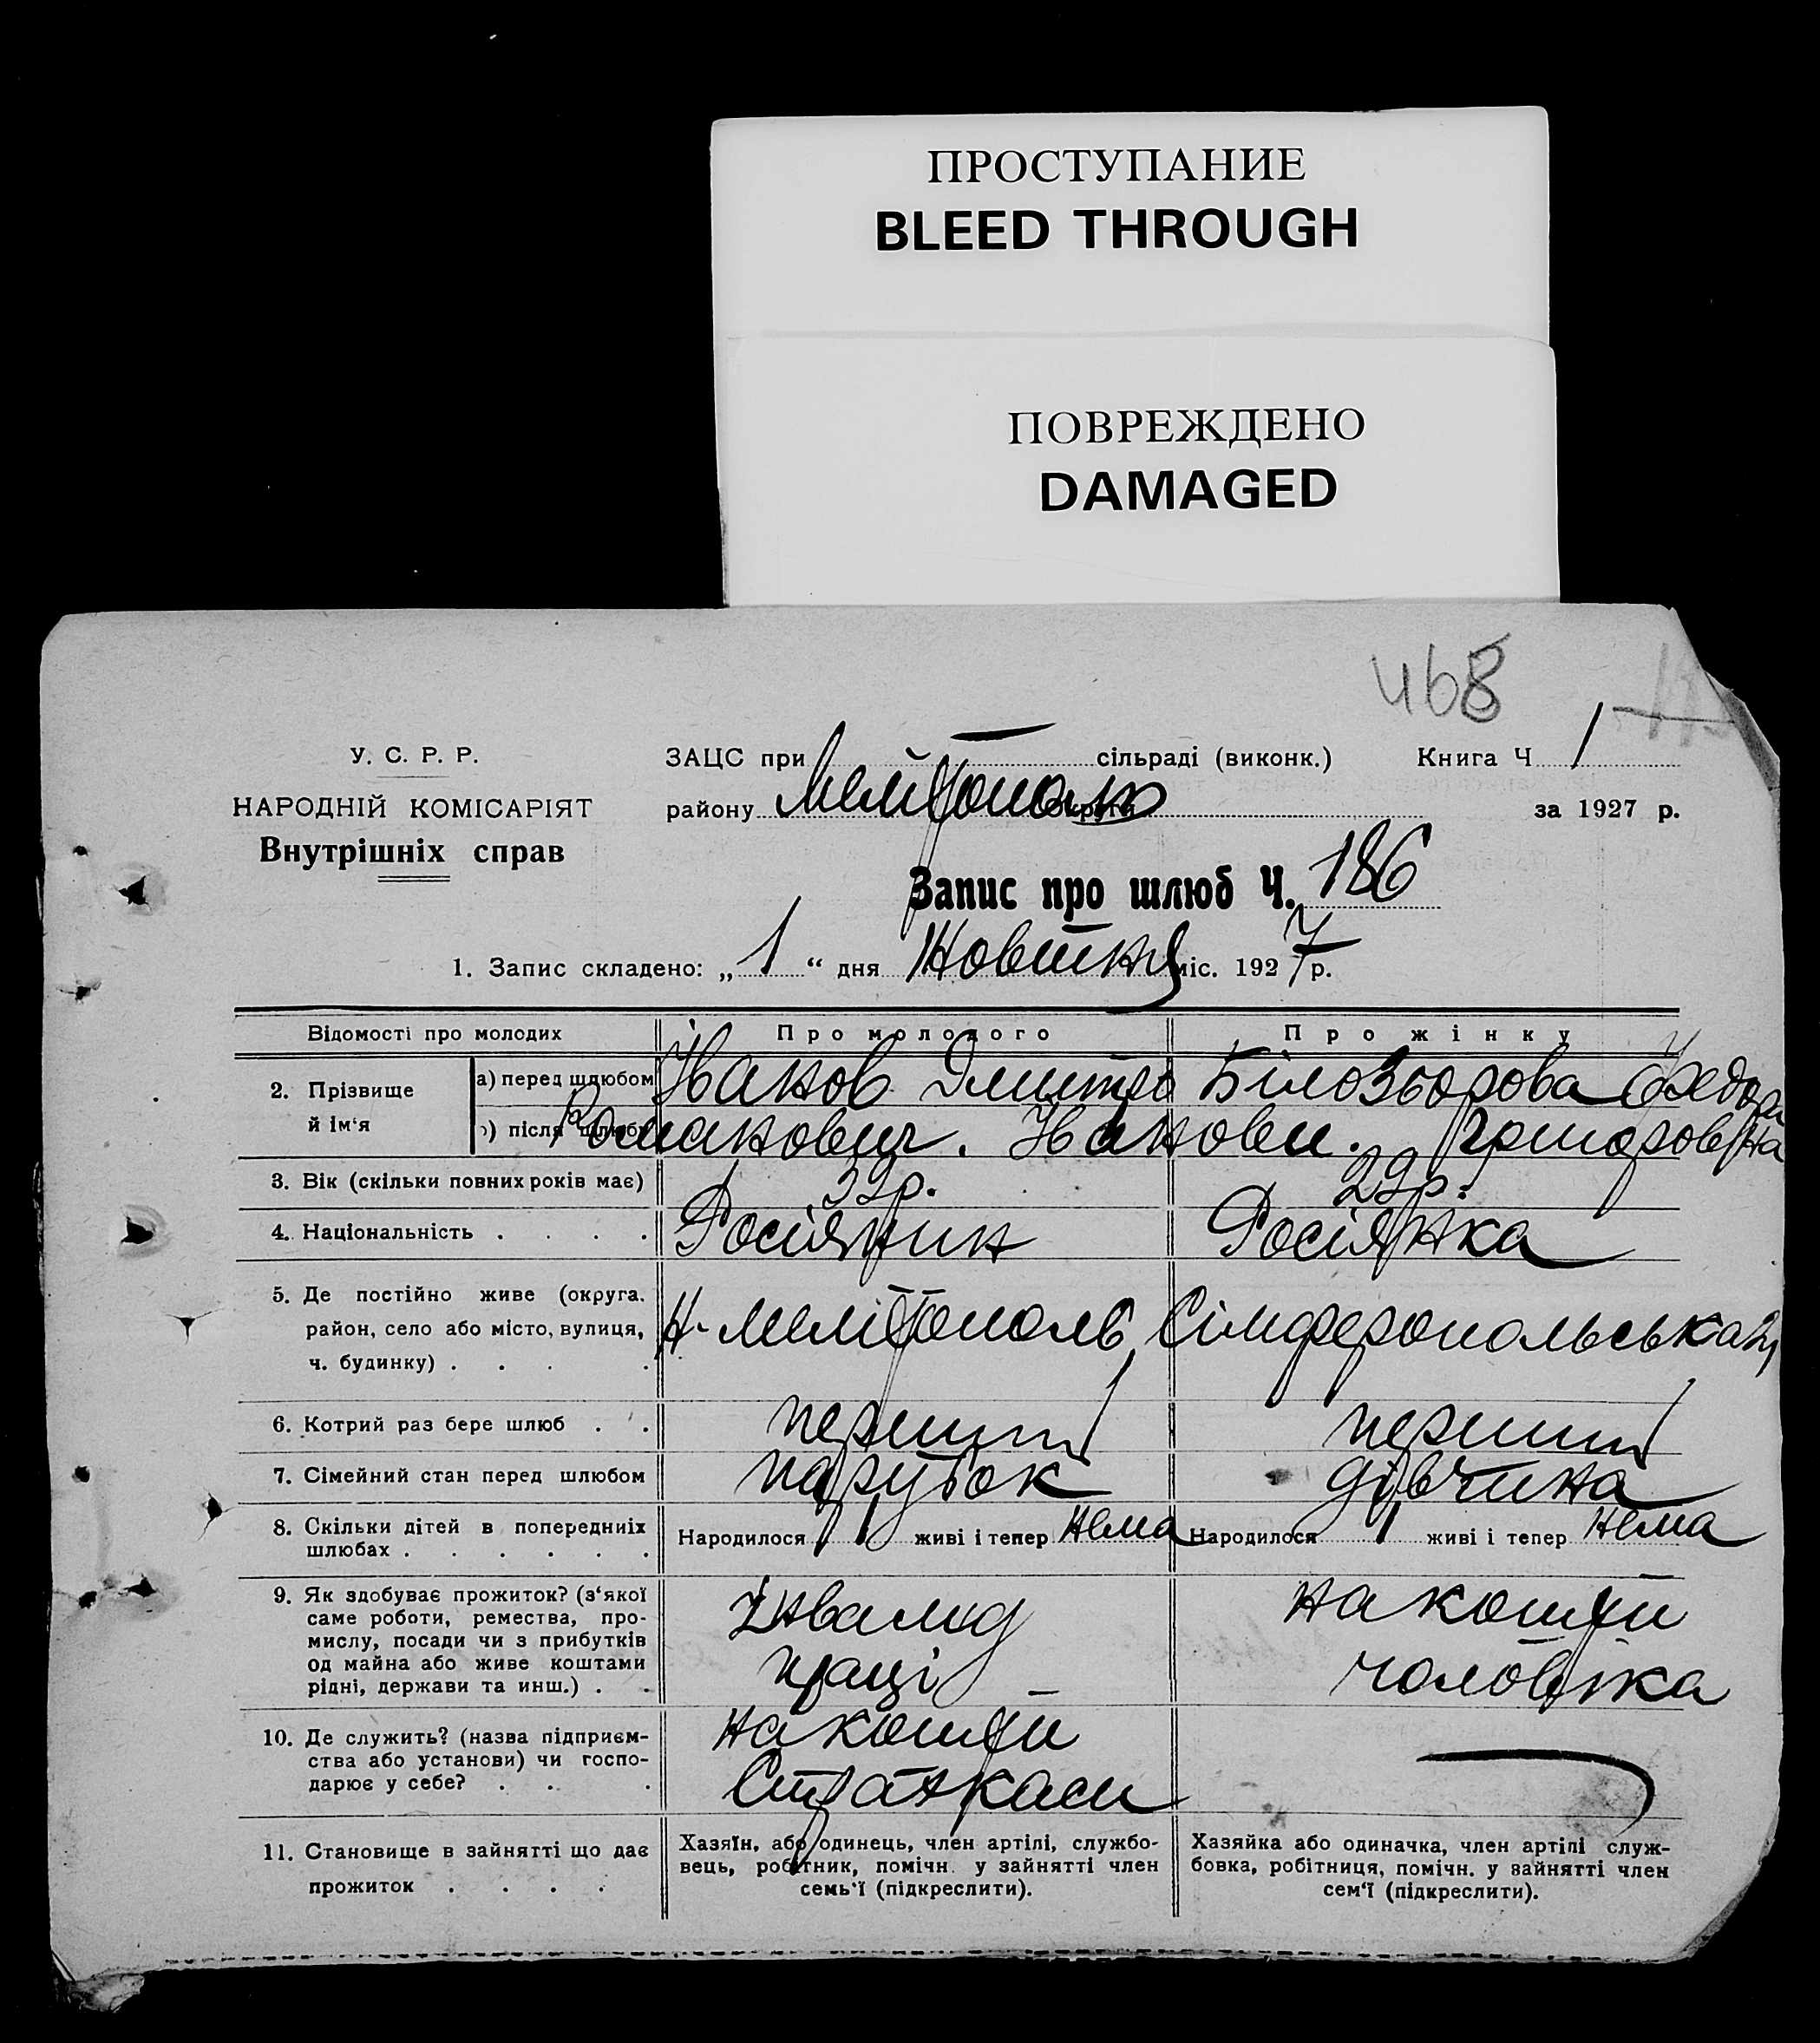 ПРОСТУПАНИЕ
BLEED THROUGH
ПОВРЕЖДЕНО
DAMAGED
468
У. С. Р. Р.
НАРОДНІЙ КОМІСАРІЯТ
Внутрішніх справ
ЗАЦС при сільраді (виконк.) Книга Ч. 1
району Мелітополь округи за 1927 р.
Запис про шлюб Ч. 186
1. Запис складено: „ 1 “ дня Жовтня міс. 1927 р.
Відомості про молодих Про молодого Про жінку
2. Прізвище й ім‘я а) перед шлюбом Іванов Дмитро Білозьорова Федора
) після шлюбу Романович. Іванови. Григоровна
3. Вік (скільки повних років має) 33р. 29р.
4. Національність . . . . Росіянин Росіянка
5. Де постійно живе (округа,
район, село або місто, вулиця, Мелітополь, Сімферопольська
ч. будинку) . . . .
6. Котрий раз бере шлюб . . перший перший
7. Сімейний стан перед шлюбом парубок дівчина
8. Скільки дітей в попередниіх Народилося живі і тепер нема Народилося живі і тепер нема
шлюбах . . . . . .
9. Як здобуває прожиток? (з‘якої
саме роботи, ремества, про-
мислу, посади чи з прибутків
од майна або живе коштами
рідні, держави та инш.) . .
Інвалід на кошти
праці чоловіка
10. Де служить? (назва підприєм-
ства або установи) чи госпо-
дарює у себе? . . .
на кошти
Страхкаси
11. Становище в зайнятті що дає
прожиток . . . .
Хазяїн, або одинець, член артілі, службо-
вець, робітник, помічн. у зайнятті член
семь‘ї (підкреслити).
Хазяйка або одиначка, член артілі служ-
бовка, робітниця, помічн. у зайнятті член
сем‘ї (підкреслити).